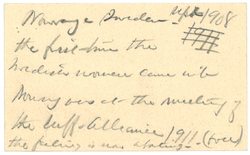 Norway & Sweden up to 1908
the first time the
Swedish women came into
Norway was at the meeting of
the Suff. Alliance 1911. (over)
the feeling is now